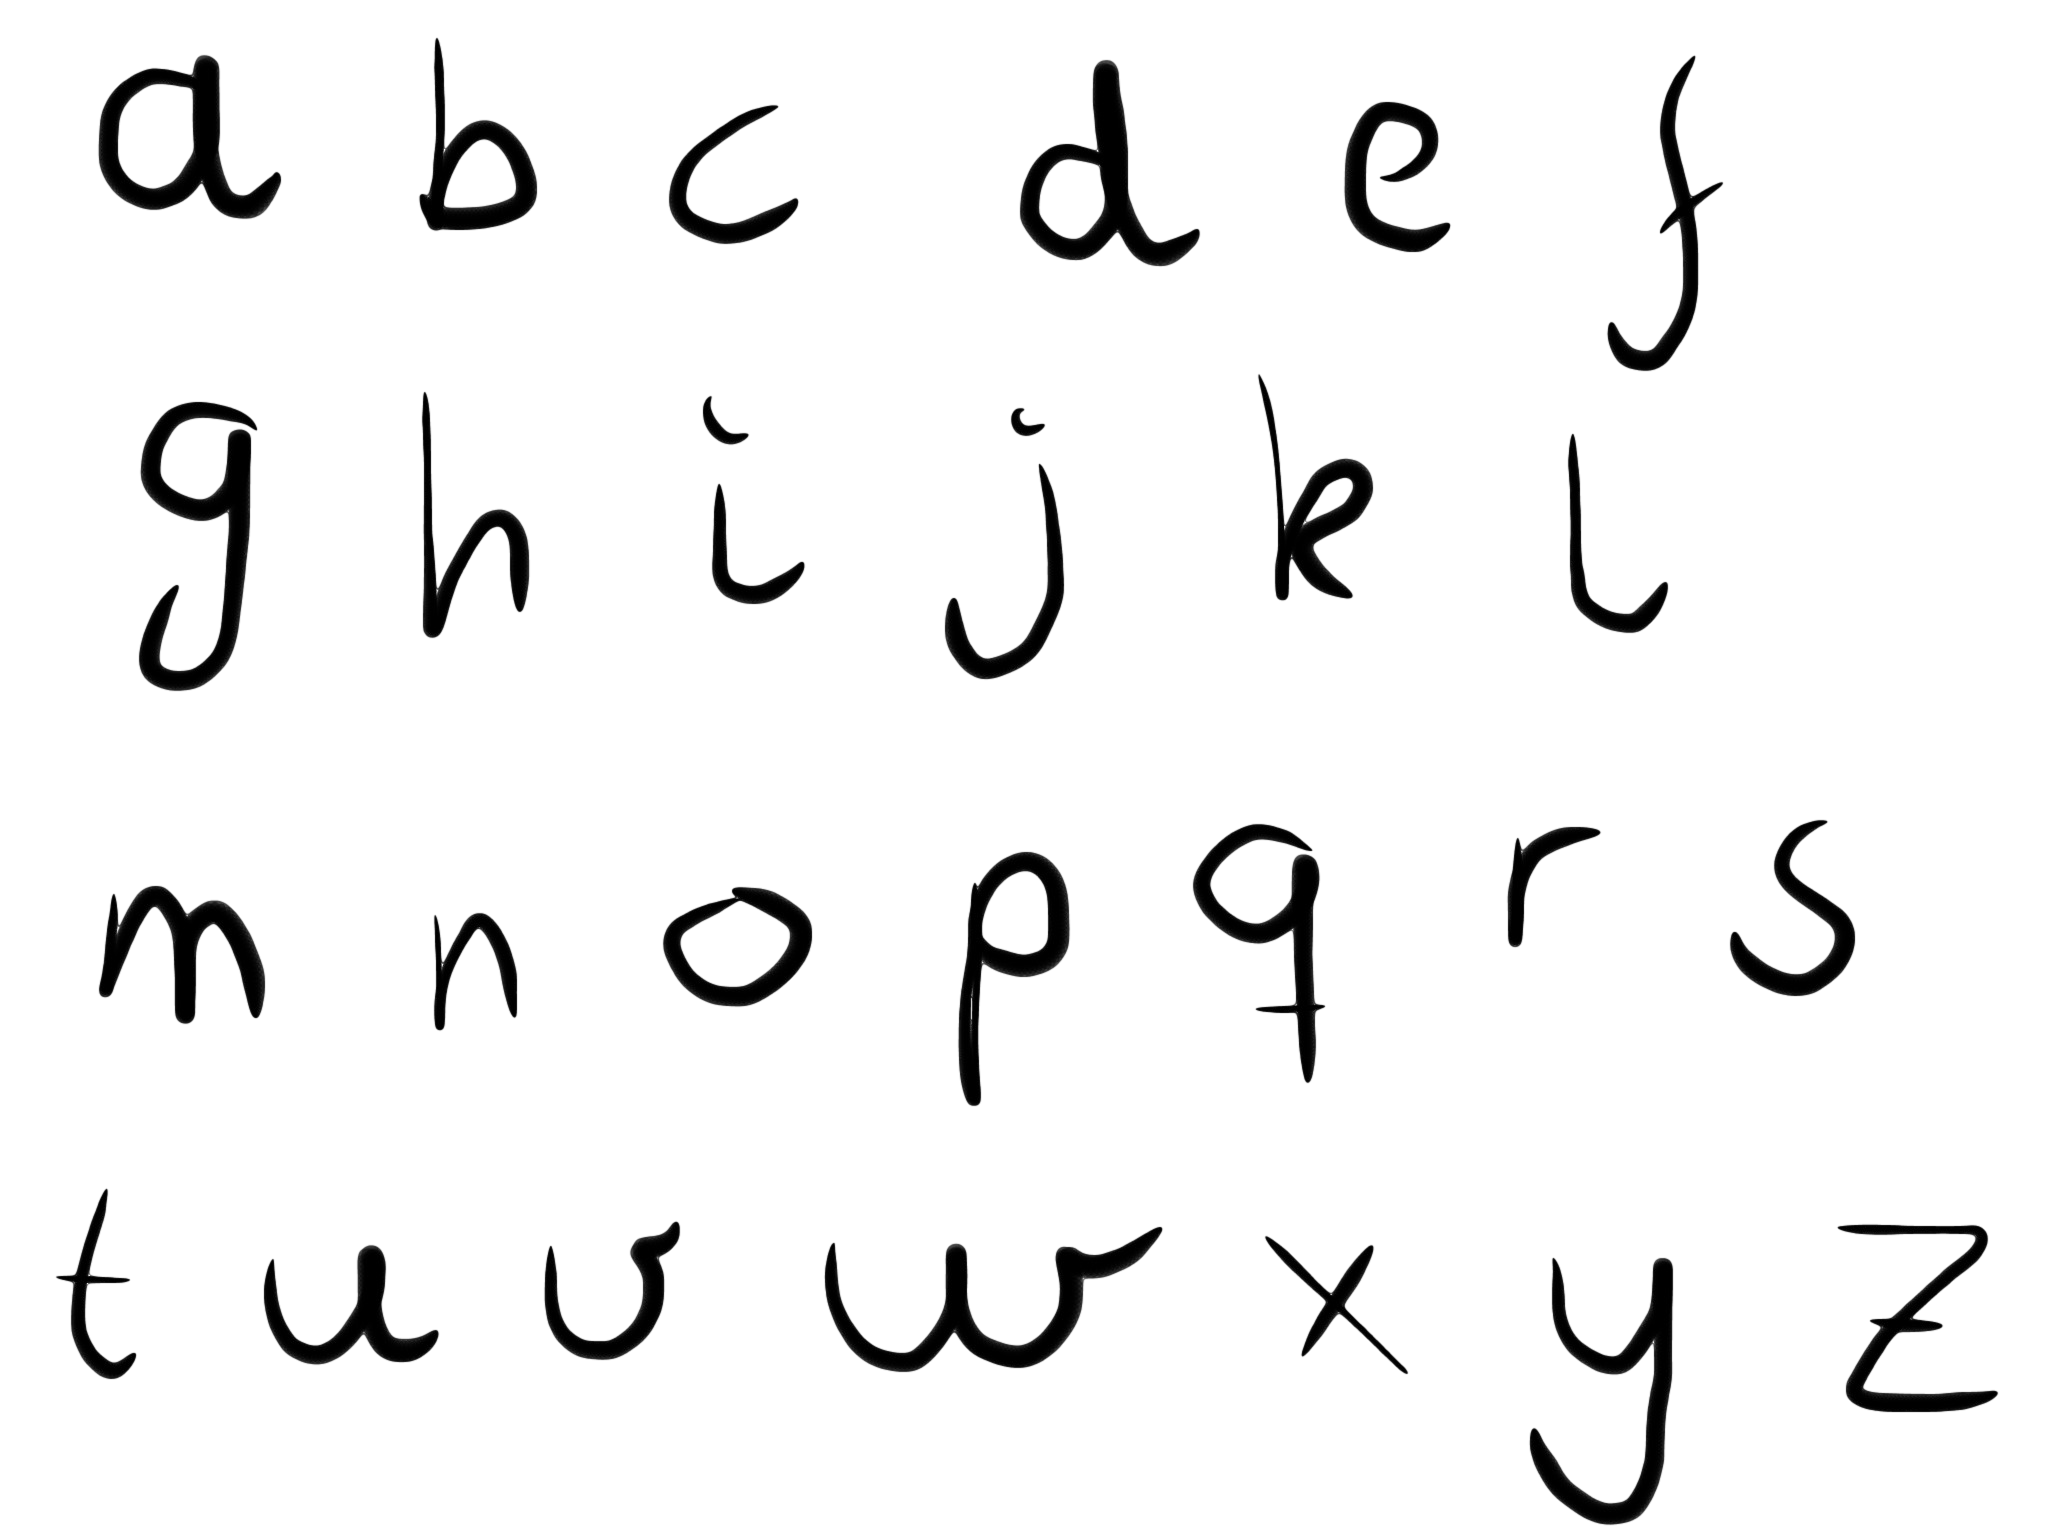 a b c d e f
g h i j k l
m n o p q r s
t u v w x y z